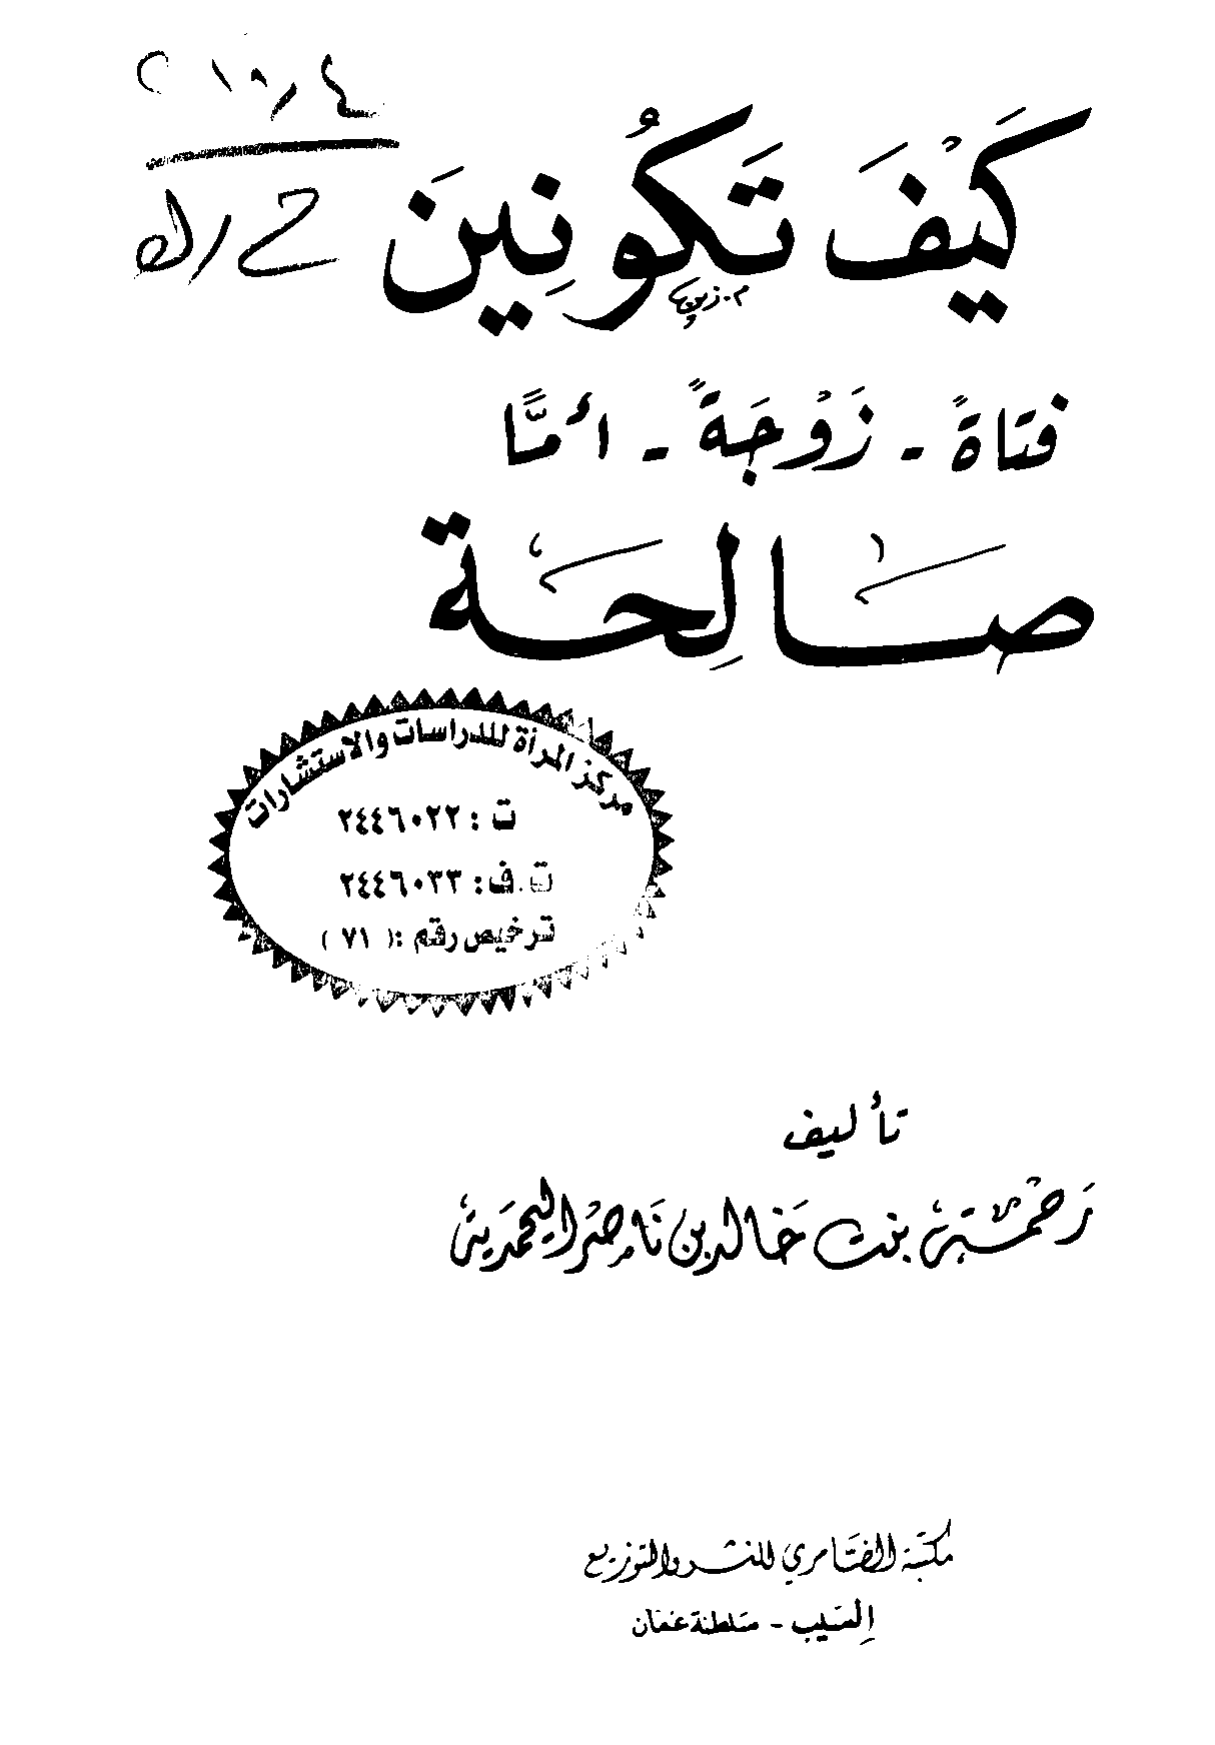 ٢١٨٫٤
كَيْفَ تَكُونِينَ
فتاةً - زَوْجَةً - أمًّا
صَالِحَة
مركز المرأة للدراسات والاستشارات
ت : ٢٤٤٦٠٢٢
ت.ف: ٢٤٤٦٠٣٣
ترخيص رقم :( ٧١ )
تأليف
رَحْمَة بنت خَالد بن نَاصْر اليحمَدية
مكتبة الضَّامري للنشر والتوزيع
السَيب - سَلطنة عمَان